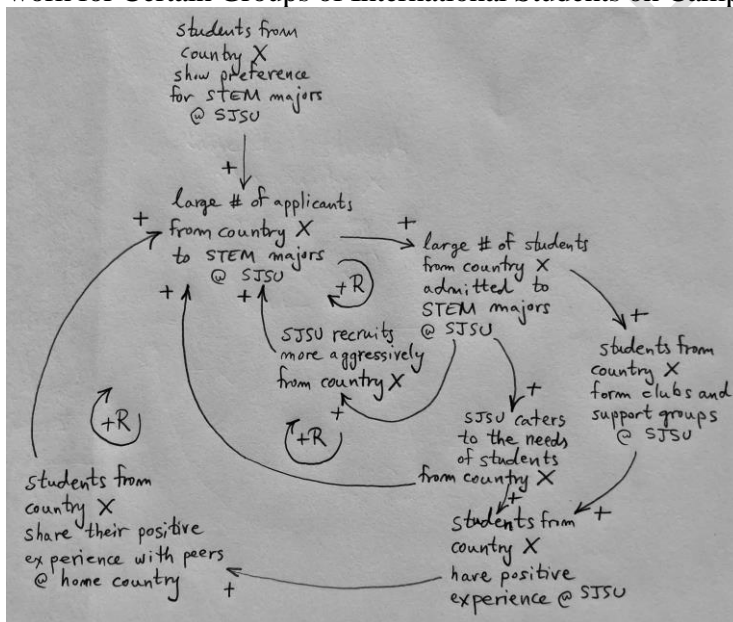 work for Certain Groups of International Students on Camp
students from
country X
show preference
for STEM majors
@ SJSU
+
large # of applicants
from country X
to STEM majors
@ SJSU
+
+
+
+
+R
large # of students
from country X
admitted to
STEM majors
@ SJSU
SJSU recruits
more aggressively
from country X
+
+R
+
students from
country X
form clubs and
support groups
@ SJSU
+
SJSU caters
to the needs
of students
from country X
+
+
+R
students from
country X
have positive
experience @ SJSU
students from
country X
share their positive
experience with peers
@ home country
+